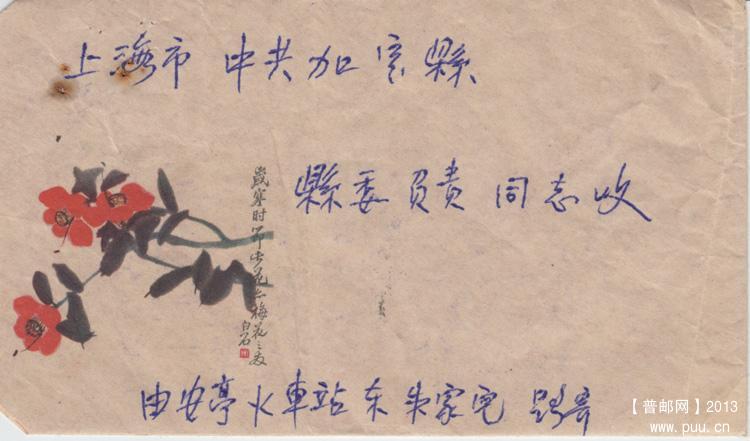 上海市 中共加定縣
縣委負責 同志收
歲寒时節此花亦梅花之友
白石
由安亭火車站东朱家宅
【普邮网】2013
www.puu.cn